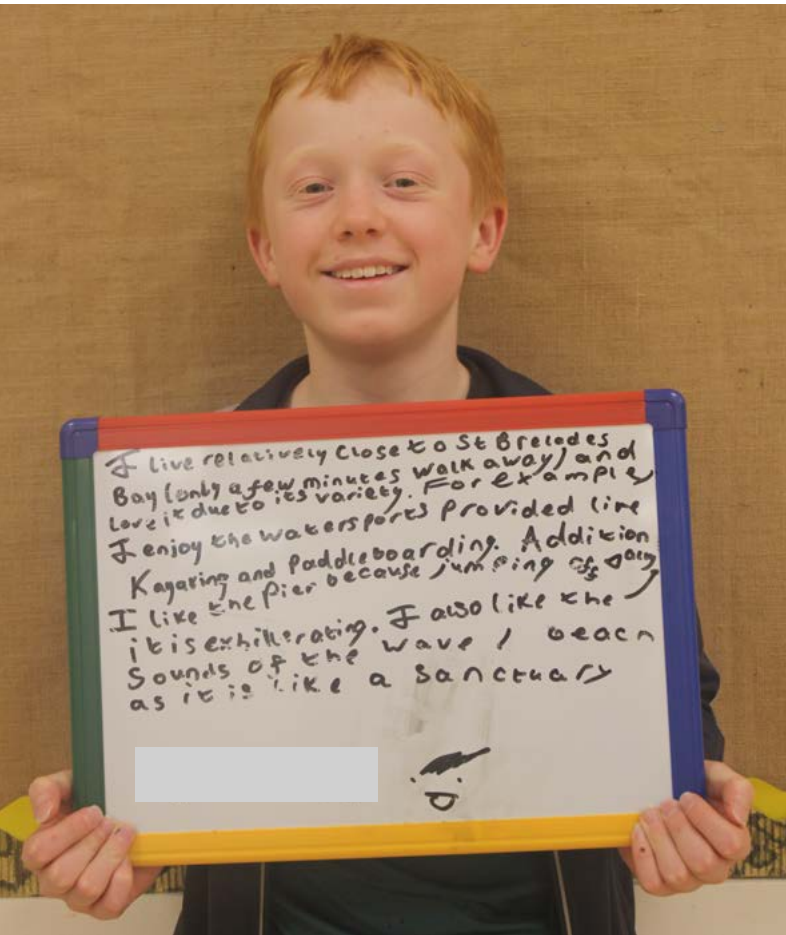 I live relatively close to St Brelades
Bay (only a few minutes walk away) and
love it due to its variety. For example,
I enjoy the watersports provided like
Kayaking and Paddleboarding. Addition
I like the Pier because jumping off ally
it is exhillerating. I also like the
Sounds of the wave / beach
as it is like a sanctuary